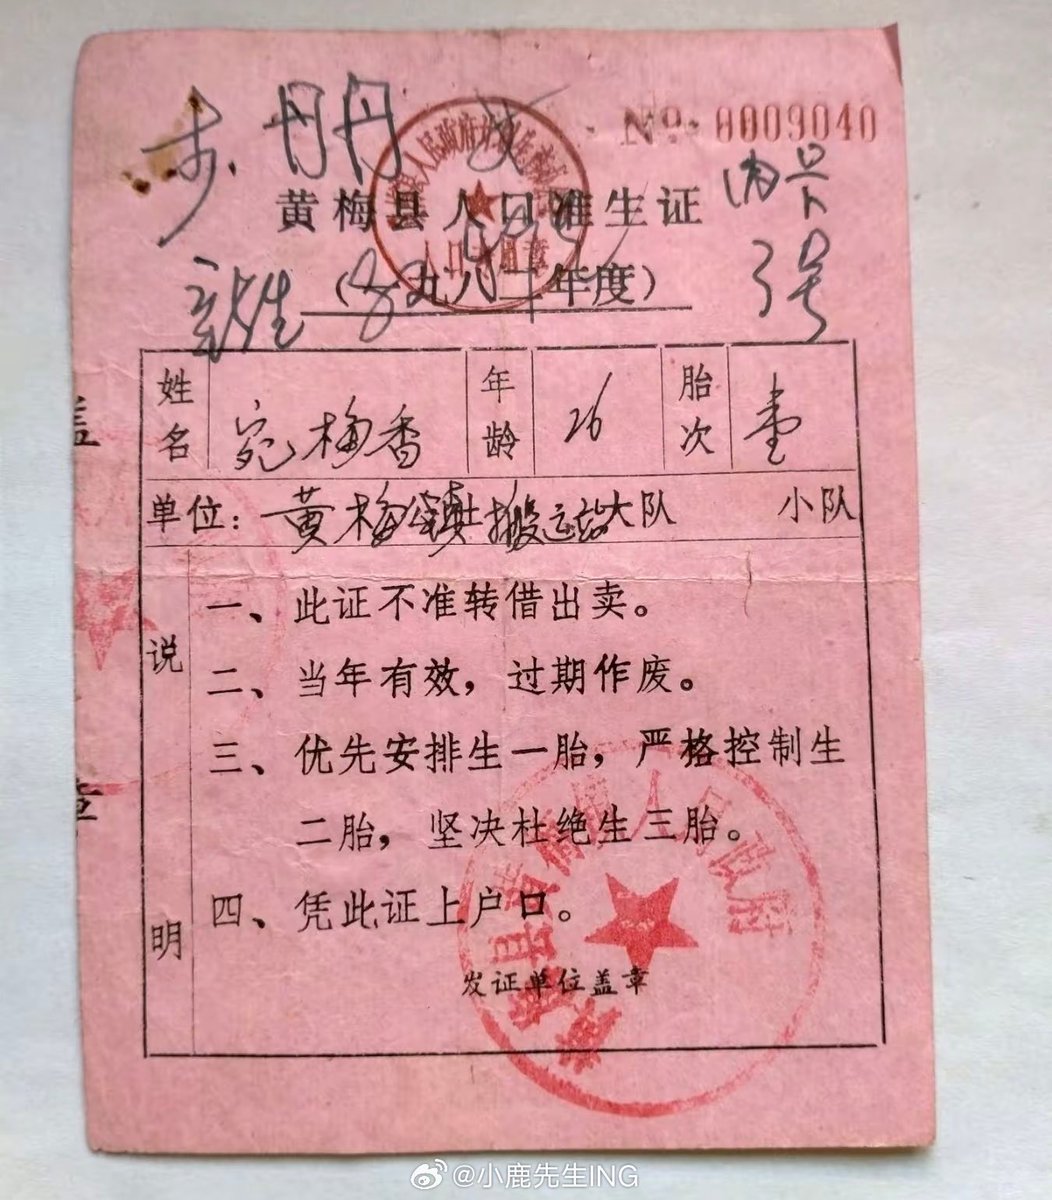 丹丹
№ 0009040
黄梅县人口准生证
(一九八二年度)
3号
姓名 宛梅香 年龄 26 胎次 壹
单位：黄梅镇搬运站大队 小队
说明
一、此证不准转借出卖。
二、当年有效，过期作废。
三、优先安排生一胎，严格控制生
二胎，坚决杜绝生三胎。
四、凭此证上户口。
发证单位盖章
盖
章
@小鹿先生ING